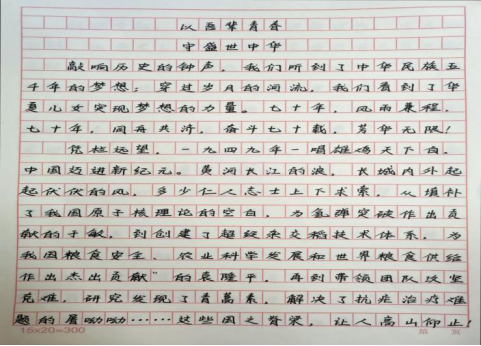 以吾辈青春
守盛世中华
敲响历史的钟声，我们听到了中华民族五
千年的梦想；穿过岁月的河流，我们看到了华
夏儿女实现梦想的力量。七十年，风雨兼程，
七十年，同舟共济，奋斗七十载，芳华无限！
凭栏远望，一九四九年一唱雄鸡天下白，
中国迈进新纪元。黄河长江的波，长城内外起
起伏伏的风，多少仁人志士上下求索，从填补
了我国原子核理论的空白，为氢弹突破作出贡
献的于敏，到创建了超级杂交稻技术体系，为
我国粮食安全、农业科学发展和世界粮食供给
作出杰出贡献"的袁隆平，再到带领团队攻坚
克难，研究发现了青蒿素，解决了抗疟治疗难
题的屠呦呦……这些国之脊梁，让人高山仰止！
15×20=300 第 页